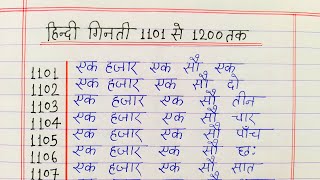 हिन्दी गिनती 1101 से 1200 तक
1101 एक हजार एक सौ एक
1102 एक हजार एक सौ दो
1103 एक हजार एक सौ तीन
1104 एक हजार एक सौ चार
1105 एक हजार एक सौ पाँच
1106 एक हजार एक सौ छः
1107 एक हजार एक सौ सात